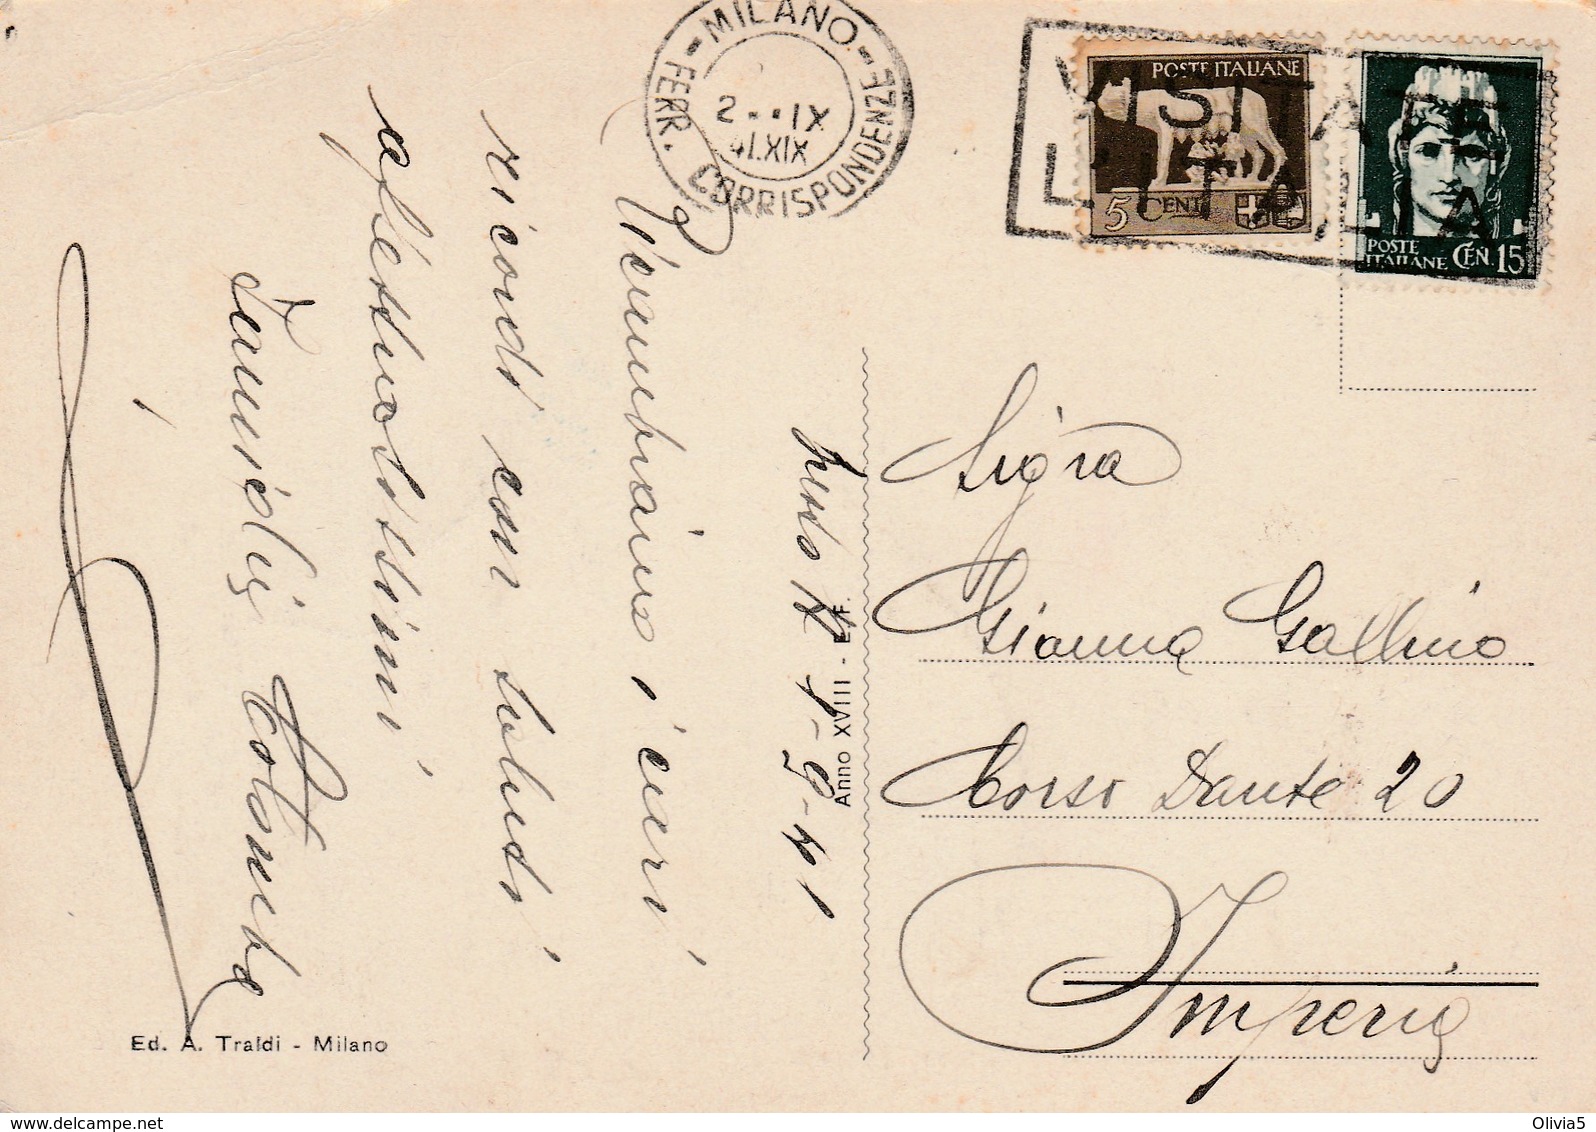 MILANO
FERR. CORRISPONDENZE
2 - IX
41.XIX
VISITATE
L'ITALIA
POSTE ITALIANE
5 CENT
POSTE
ITALIANE CEN. 15
9-41
Ricambiamo i cari
ricordi con saluti
affettuosissimi
Famiglia Colombo
Anno XVIII - E.F.
Sig.ra
Gianna Gallino
Corso Dante 20
Imperia
Ed. A. Traldi - Milano
www.delcampe.net
Olivia5